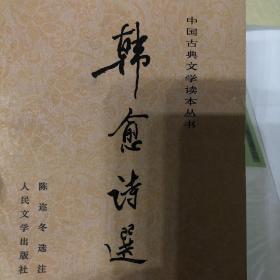 中国古典文学读本丛书
韩愈诗選
陈迩冬选注
人民文学出版社